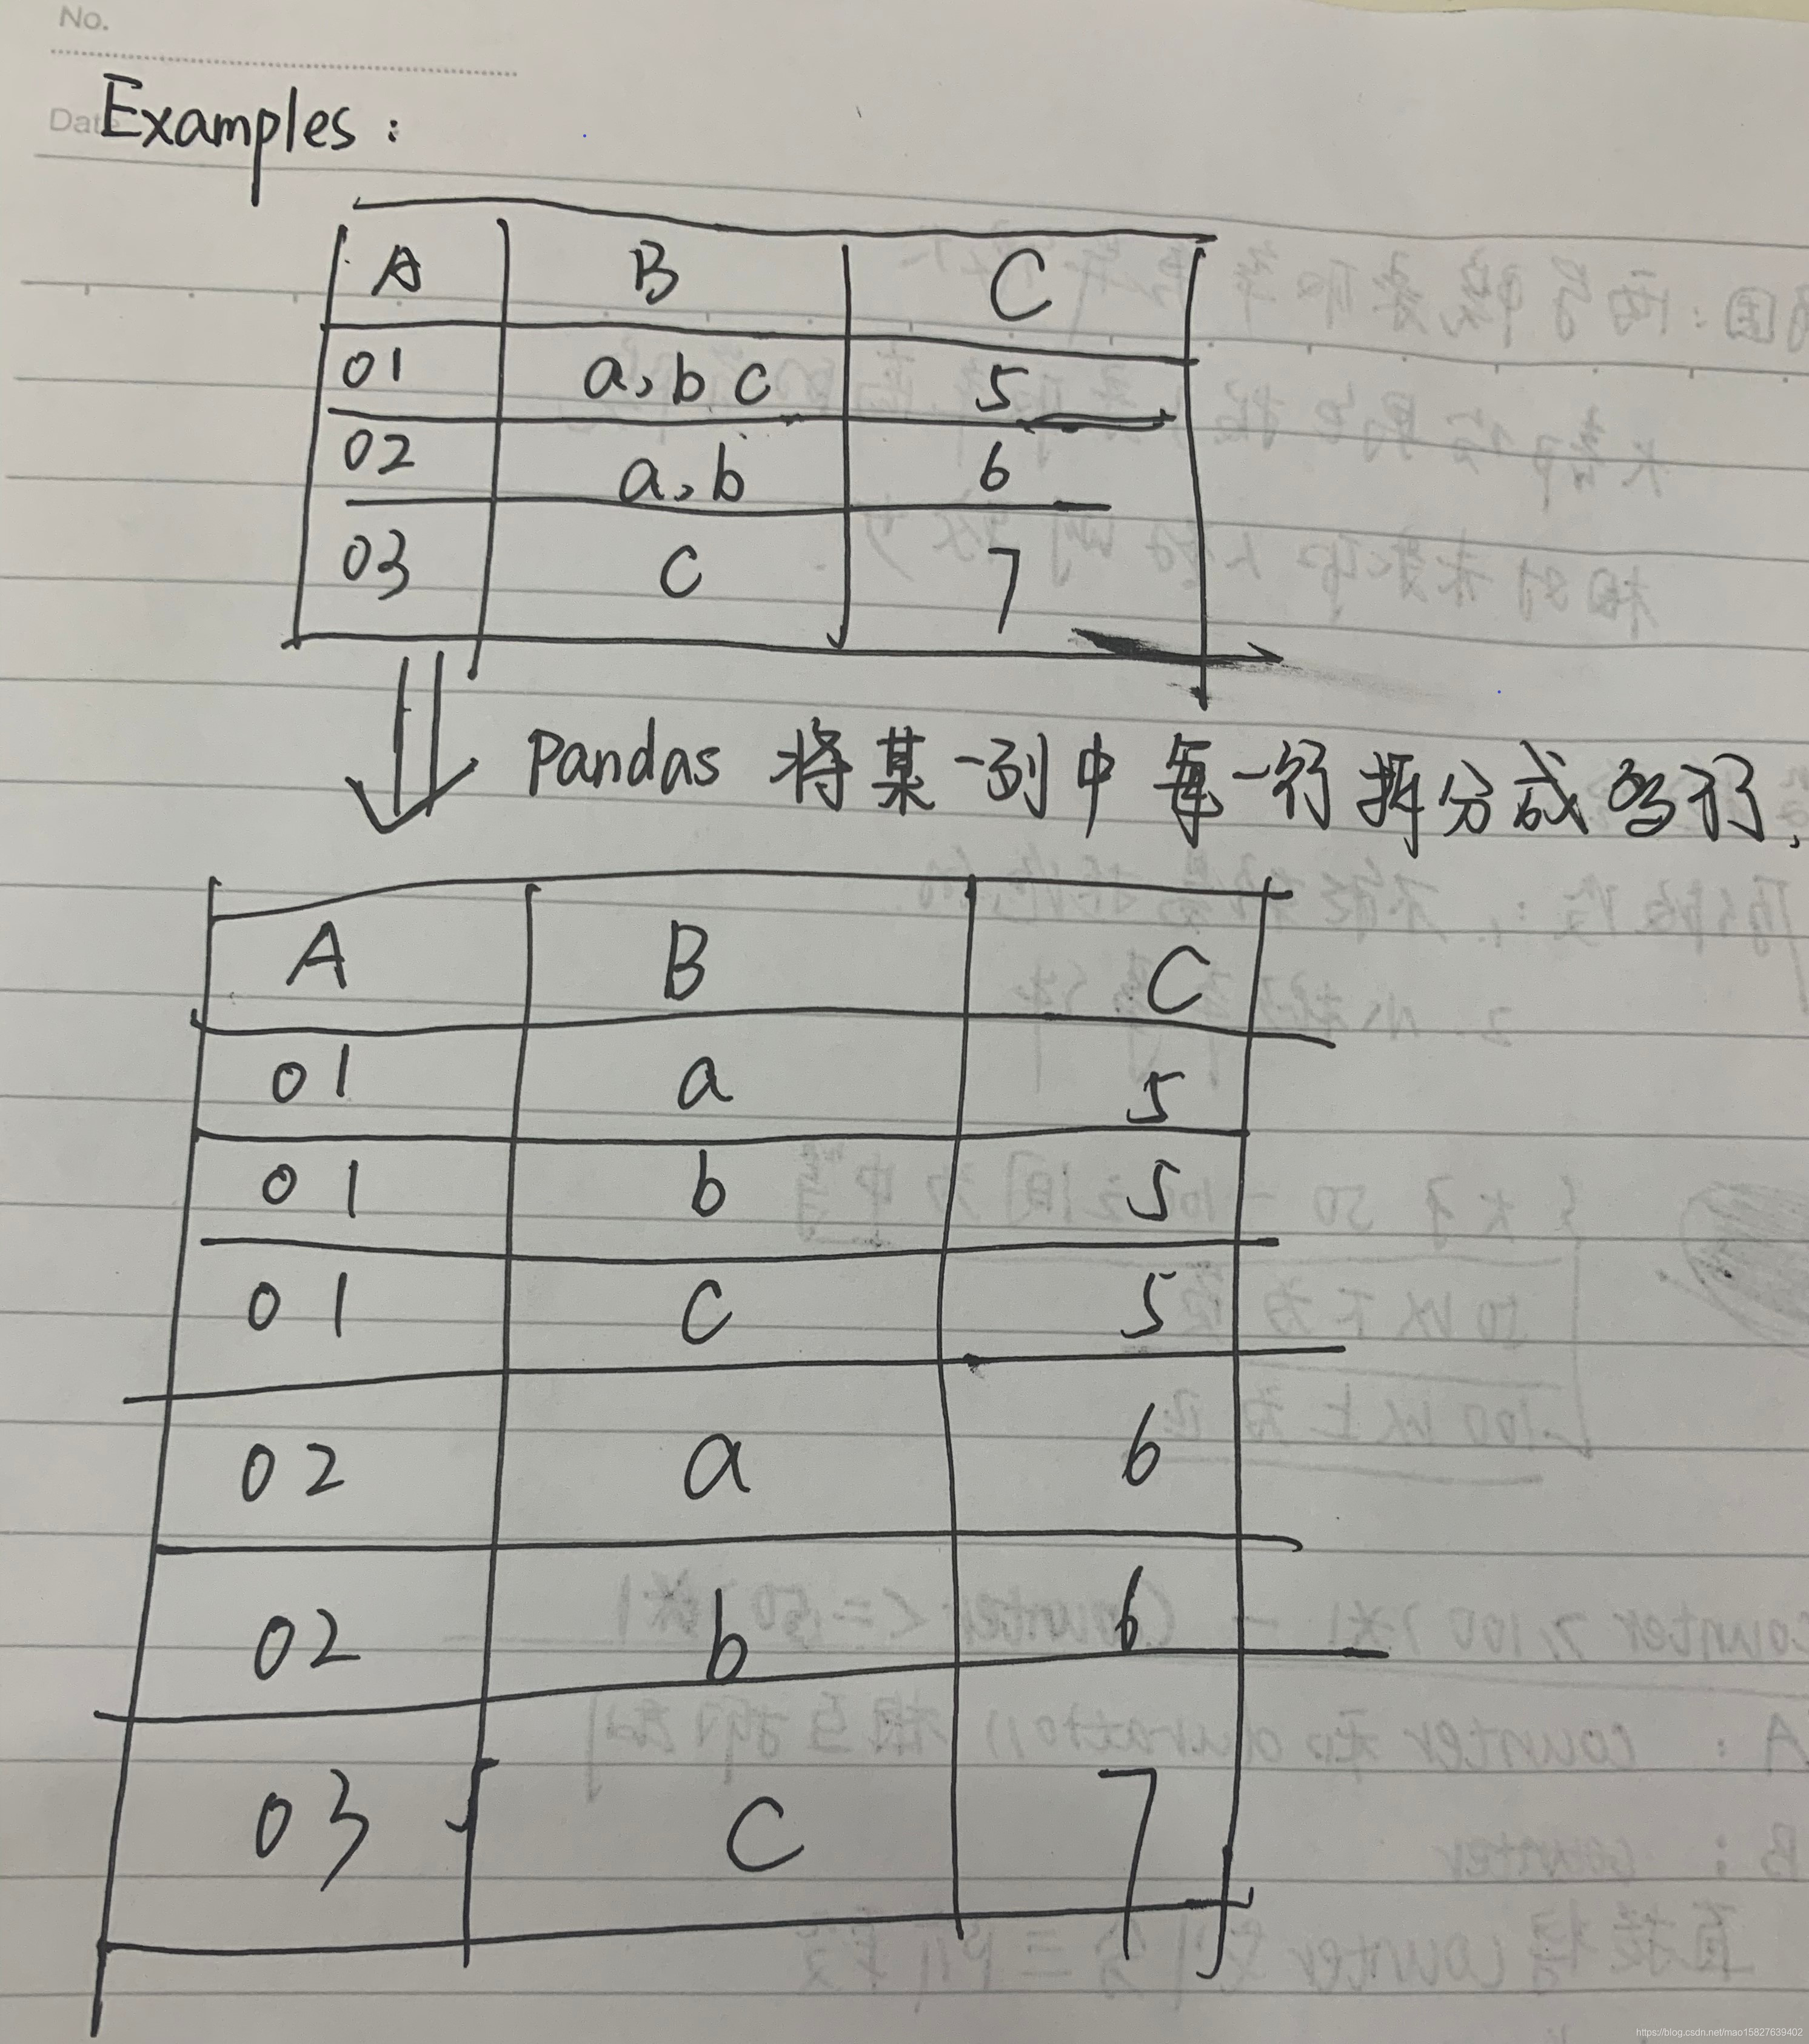 No.
Date
Examples:
A B C
01 a,b c 5
02 a,b 6
03 c 7
Pandas 将某一列中每一行拆分成多行.
A B C
01 a 5
01 b 5
01 c 5
02 a 6
02 b 6
03 c 7
https://blog.csdn.net/mao15827639402